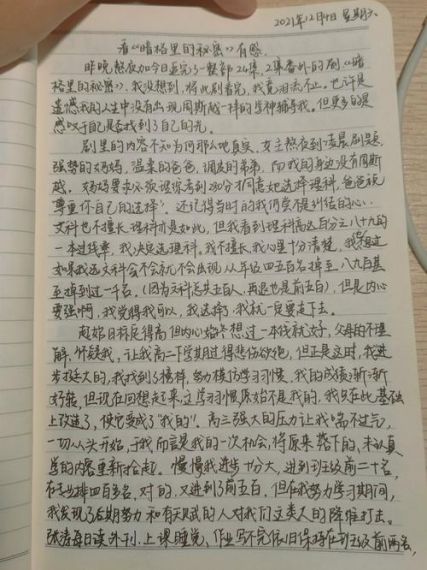 2021年12月4日 星期六
看《暗格里的秘密》有感
昨晚熬夜加今日追完了一整部24集,2集番外的剧《暗
格里的秘密》,我没想到,将此剧看完,我竟泪流不止。也许是
遗憾我的人生中没有出现周斯越一样的学神辅导我。但更多的是
感叹于自己是否找到了自己的光。
剧里的内容不知为何那么地真实,女主熬夜到凌晨刷题
强势的妈妈,温柔的爸爸,调皮的弟弟,而我的身边没有周斯
越,妈妈要求必须考到 分才同意她选择理科,爸爸说
尊重你自己的选择。还记得当时的我仍受不住纠结的心
文科也不擅长理科亦是如此,但我看到理科高达百分之八十九的
一本过线率,我决定选理科,我不擅长,我心里十分清楚,我想过
如果我选文科会不会就不会出现从年级四五百名掉至八九百甚
至掉到过一千名。(因为文科总共五百人,再退也是前五百),但是内心
要强啊,我觉得我可以,我选择,我就一定要走下去。
起始目标定得高但内心始终想过一本线就好,父母的不理
解,怀疑我,让我高二下学期过得悲伤欲绝,但正是这时,我进
步挺大的,我找到了榜样,努力模仿学习习惯,我的成绩渐渐
好转,但现在回想起来,这学习习惯原始不是我的,我只在此基础
上改进了,使它变成了“我的”。高三强大的压力让我喘不过气,
一切从头开始,于我而言是我的一次机会,将原来落下的,未认真
学的内容重新拾起。慢慢我进步十分大,进到班级前二十名,
在年级排四百多名,对的,又进到了前五百,但在我努力学习期间,
我发现了后期努力和有天赋的人对我们这类人的降维打击。
每日读外刊,上课睡觉,作业写不完依旧保持在班级前两名,